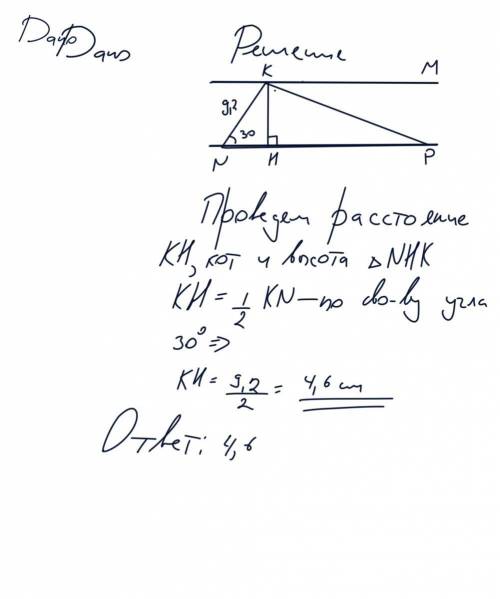 Дано Дано Решение
K M
9,2
30
N H P
Проведем расстояние
KH, кот и высота △NHK
KH = 1/2 KN — по св-ву угла
30° ⇒
KH = 9,2/2 = 4,6 см
Ответ: 4,6